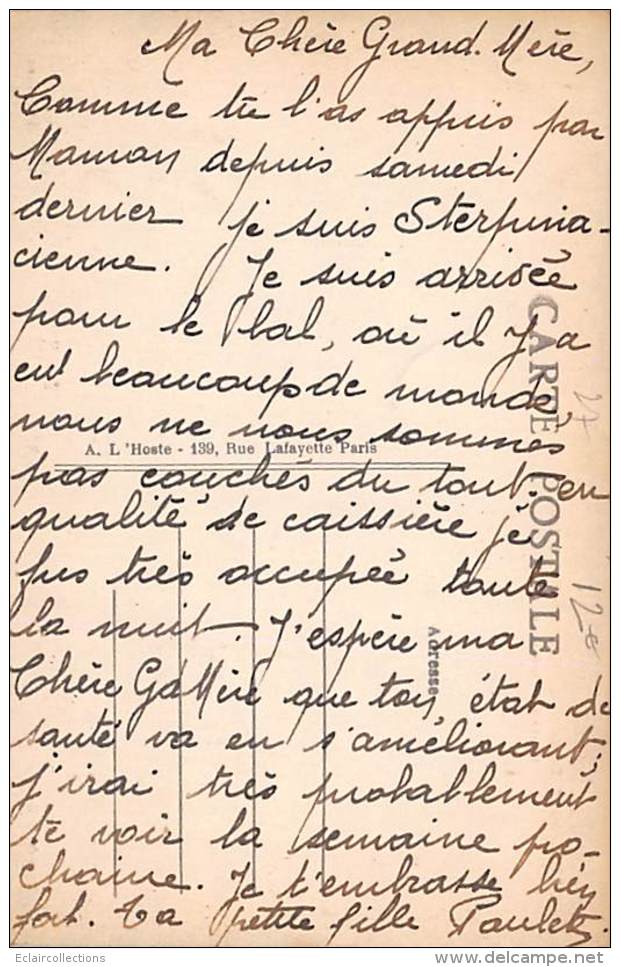 Ma Chère Grand. Mère,
Comme tu l'as appris par
Maman depuis samedi
dernier je suis Sterpinia-
cienne. Je suis arrivée
pour le bal, où il y a
eut beaucoup de monde,
nous ne nous sommes
A. L'Hoste - 139, Rue Lafayette Paris
pas couchés du tout. en
qualité de caissière je
fus très occupée toute
la nuit. J'espère ma
Chère Gd Mère que ton état de
santé va en s'améliorant;
j'irai très probablement
te voir la semaine pro-
chaine. Je t'embrasse bien
fort. Ta petite fille Paulette.
CARTE POSTALE
Adresse
27
12€
Eclaircollections
www.delcampe.net